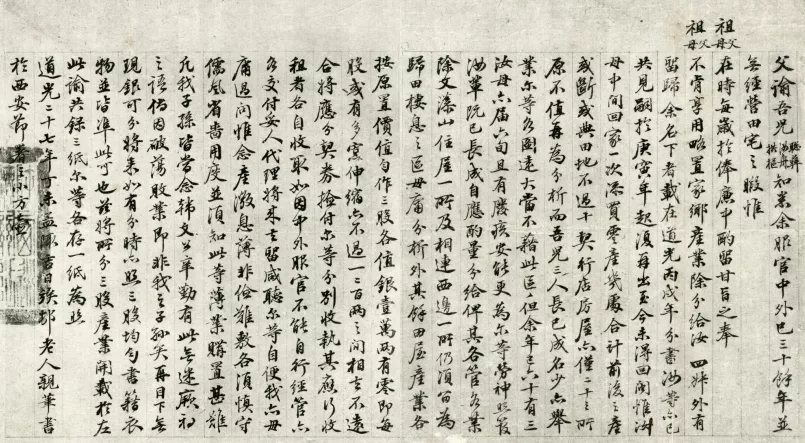 父諭吾兒聰彝汝舟拱樞知悉余服官中外已三十餘年並
無經營田宅之暇惟
祖父母父母
在時每歲於俸廉中酌留甘旨之奉
祖父母父母
不肯享用略置家鄉產業除分給汝四叔外有
留歸余名下者載在道光丙戌年分書汝等亦已
共見嗣於庚寅年起復再出至今未得回閩惟汝
母中間回家一次添買零產幾處合計前後之產
或斷或典田地不過十契行店房屋亦僅二十三所
原不值再為分析而吾兒三人長已成名少亦舉
業爾等各圖遠大當不藉此區區但余年已六十有三
汝母亦屆六旬且有廢疾安能更為爾等勞神照管
汝輩既已長成自應酌量分給俾其各管各業
除文藻山住屋一所及相連西邊一所仍須留為
歸田棲息之區毋庸分析外其餘田屋產業各
按原置價值勻作三股各值銀壹萬兩有零即每
股或有多寡伸縮亦不過一二百兩之間相去不遠
合將應分契券撿付爾等分別收執其應行收
租者各自收取如因中外服官不能自行經管亦
各交付妥人代理將來去留咸聽爾等自便我亦毋
庸過問惟念產微息薄非儉難敷各須慎守
儒風省嗇用度並須知此等薄業購置甚難
凡我子孫皆當念韓文公辛勤有此無迷厥初
之語倘因破蕩敗業即非我之子孫矣再目下無
現銀可分將來如有分時亦照三股均勻書籍衣
物並皆準此可也茲將所分三股產業開載於左
此諭共錄三紙爾等各存一紙為照
道光二十七年丁未孟陬吉日竢邨老人親筆書
於西安節署之小方壺